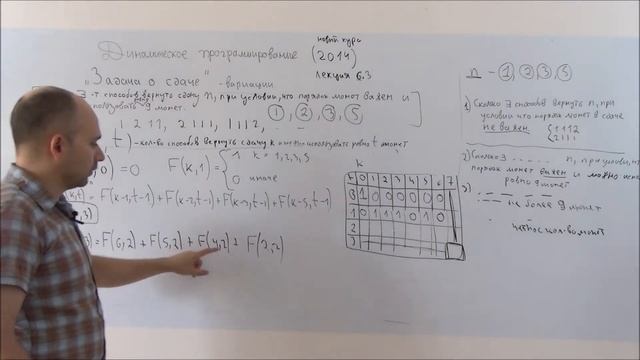 Динамическое программирование
новый курс
(2014)
лекция 6.3
"Задача о сдаче" - вариации
∃-т способов вернуть сдачу n, при условии, что порядок монет важен и
пользовать 9 монет.
1, 2, 3, 5
1 2 1 1, 2 1 1 1, 1 1 1 2,
t) - кол-во способов вернуть сдачу k
ровно t монет
0) = 0 F(k,1) = { 1 k = 1,2,3,5
0 иначе
k,t) = F(k-1,t-1) + F(k-2,t-1) + F(k-3,t-1) + F(k-5,t-1)
3) = F(6,2) + F(5,2) + F(4,2) + F(2,2)
k
0 1 2 3 4 5 6 7
0 1 0 0 0 0 0 0
1 0 1 1 1 0 1 0
2
3
n - 1, 2, 3, 5
1) Сколько ∃ способов вернуть n, при
условии что порядок монет в сдаче
не важен { 1 1 1 2
2 1 1 1
2) Сколько ∃ n, при условии, что
порядок монет важен и можно
ровно 9 монет
3)
не более 9 монет
четное кол-во монет